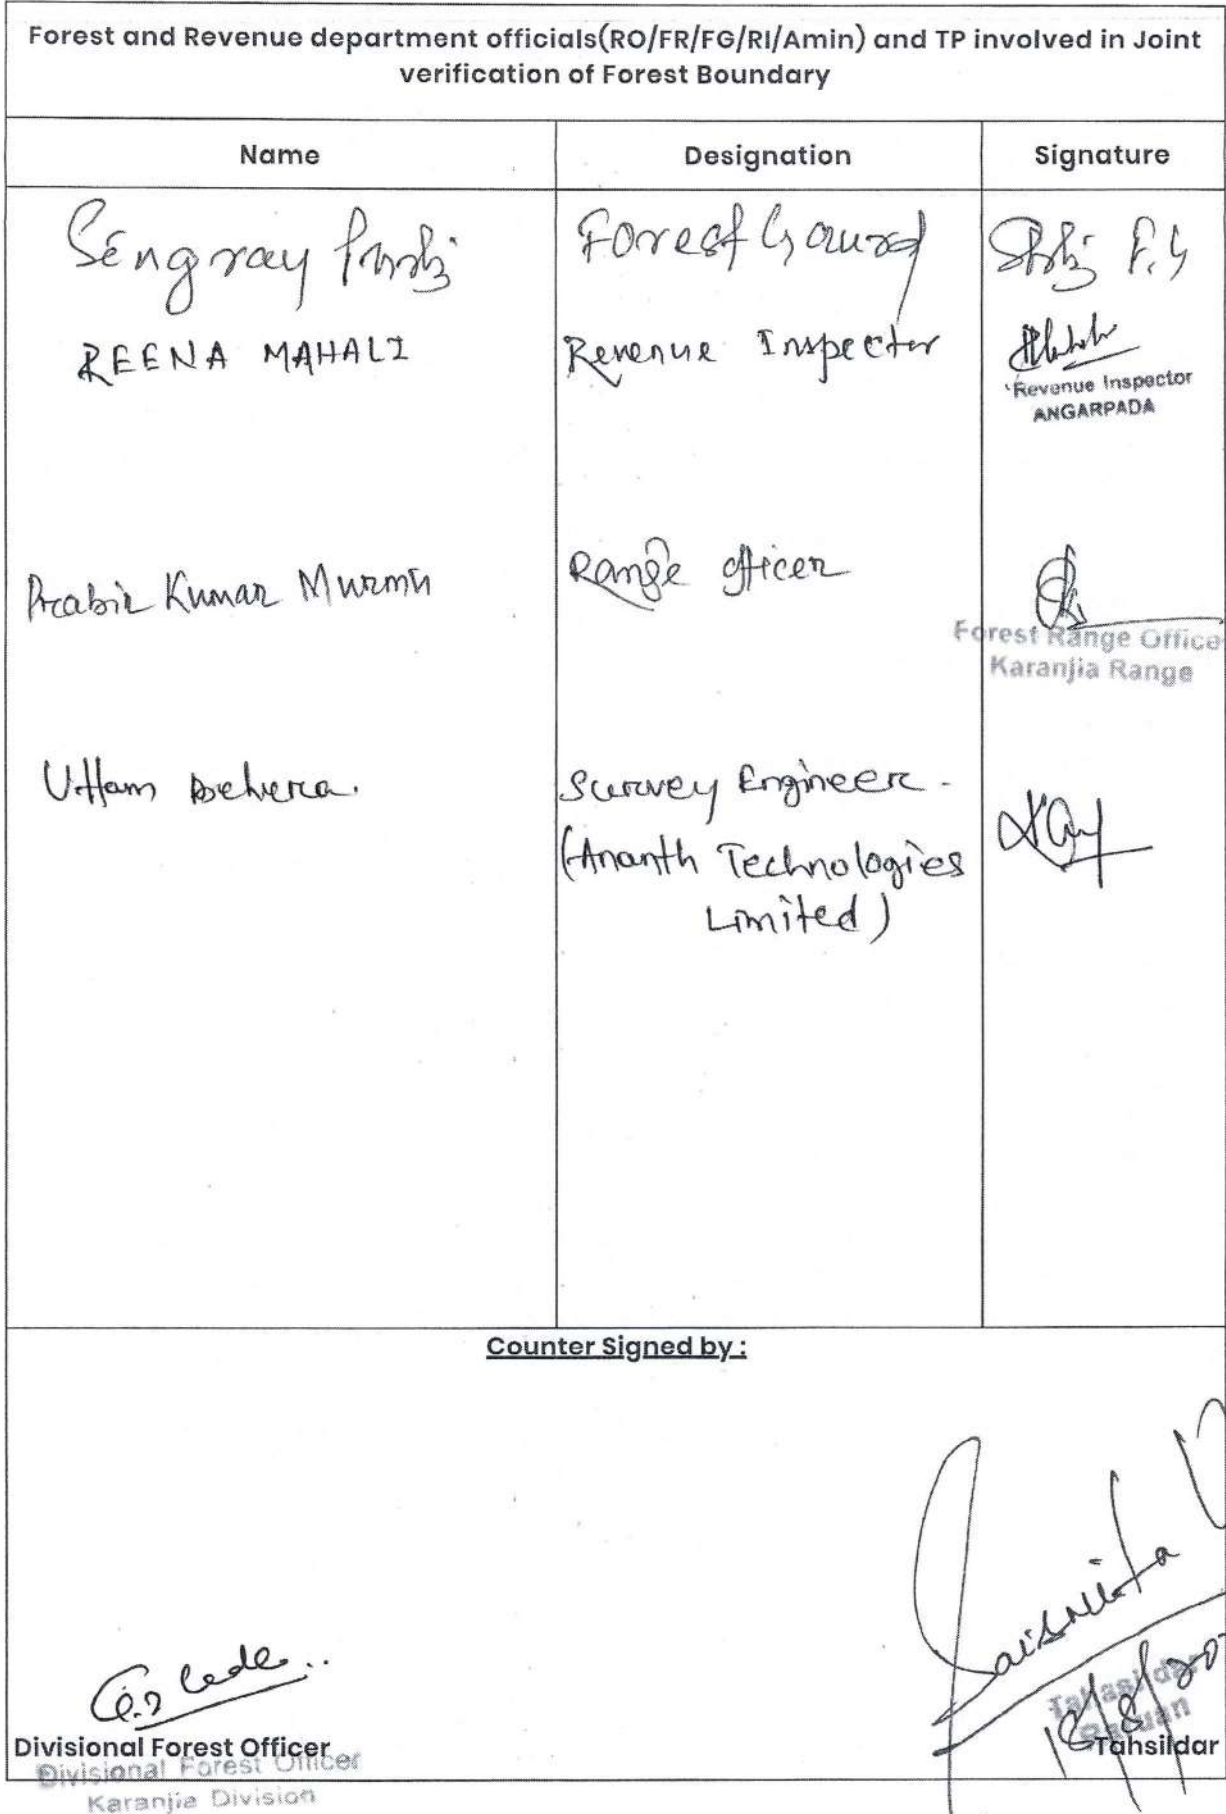 Forest and Revenue department officials(RO/FR/FG/RI/Amin) and TP involved in Joint
verification of Forest Boundary
Name Designation Signature
Sengray Forest Gaurd F.G
REENA MAHALI Revenue Inspector
Revenue Inspector
ANGARPADA
Prabir Kumar Murmu Range Officer
Forest Range Office
Karanjia Range
Uttam Behera. Survey Engineer -
(Ananth Technologies
Limited)
Counter Signed by :
Divisional Forest Officer
Divisional Forest Officer
Karanjia Division
Jaismita
Tahasildar
Tahsildar